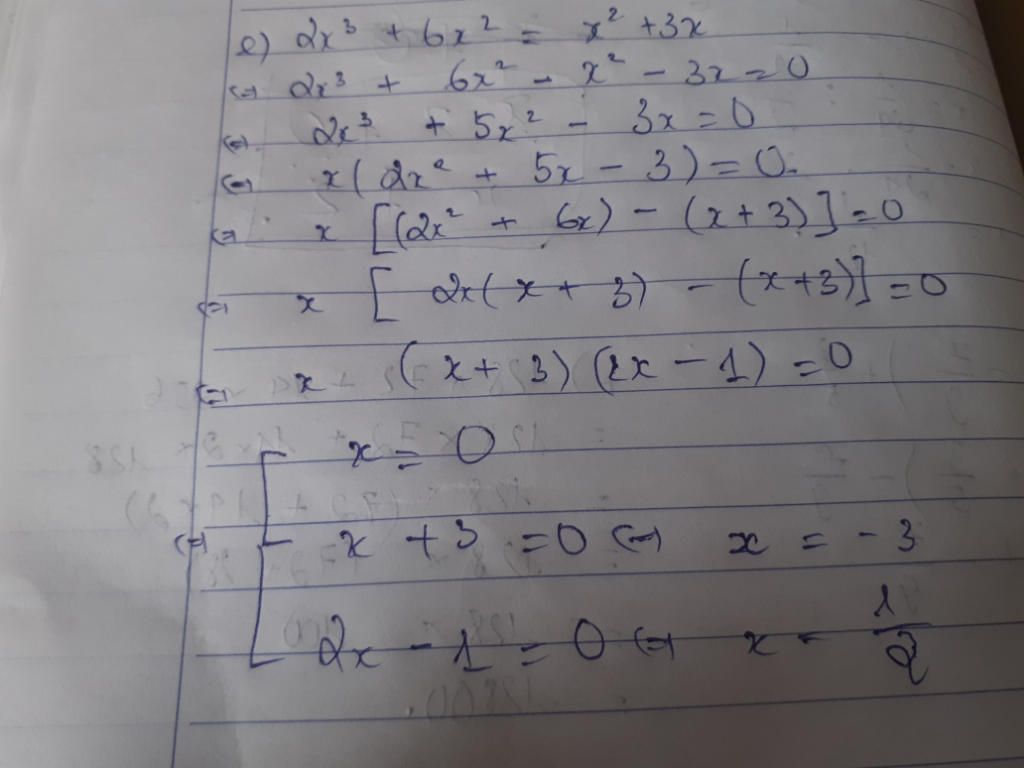 e) 2x³ + 6x² = x² + 3x
⇔ 2x³ + 6x² - x² - 3x = 0
⇔ 2x³ + 5x² - 3x = 0
⇔ x(2x² + 5x - 3) = 0.
⇔ x [(2x² + 6x) - (x + 3)] = 0
⇔ x [2x(x + 3) - (x+3)] = 0
⇔ x (x + 3)(2x - 1) = 0
⇔ [ x = 0
x + 3 = 0 ⇔ x = -3
2x - 1 = 0 ⇔ x = 1/2